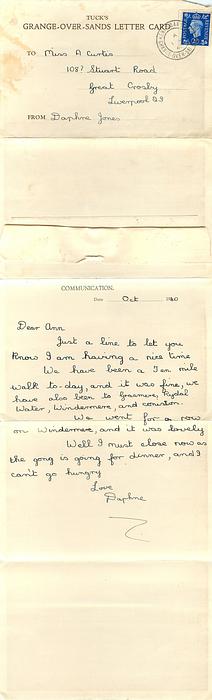 TUCK'S
GRANGE-OVER-SANDS LETTER CARD
TO Miss A Curtis
108? Stuart Road
Great Crosby
Liverpool 23
FROM Daphne Jones
COMMUNICATION.
Date Oct 1940
Dear Ann
Just a line to let you
know I am having a nice time
We have been a Ten mile
walk to-day, and it was fine, we
have also been to Grasmere, Rydal
Water, Windermere, and coniston.
We went for a row
on Windermere, and it was lovely
Well I must close now as
the gong is going for dinner, and I
can't go hungry
Love
Daphne